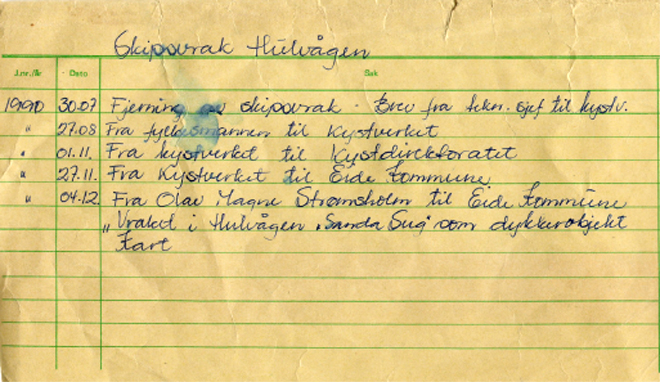 Skipsvrak Hulvågen
J.nr./År Dato Sak
1990 30.07 Fjerning av skipsvrak - Brev fra tekn. sjef til kystv.
" 27.08 Fra fylkesmannen til Kystverket
" 01.11. Fra kystverket til Kystdirektoratet
" 27.11. Fra Kystverket til Eide kommune
" 04.12. Fra Olav Magne Strømsholm til Eide kommune
"Vraket i Hulvågen "Sanda Sug" som dykkerobjekt
Kart